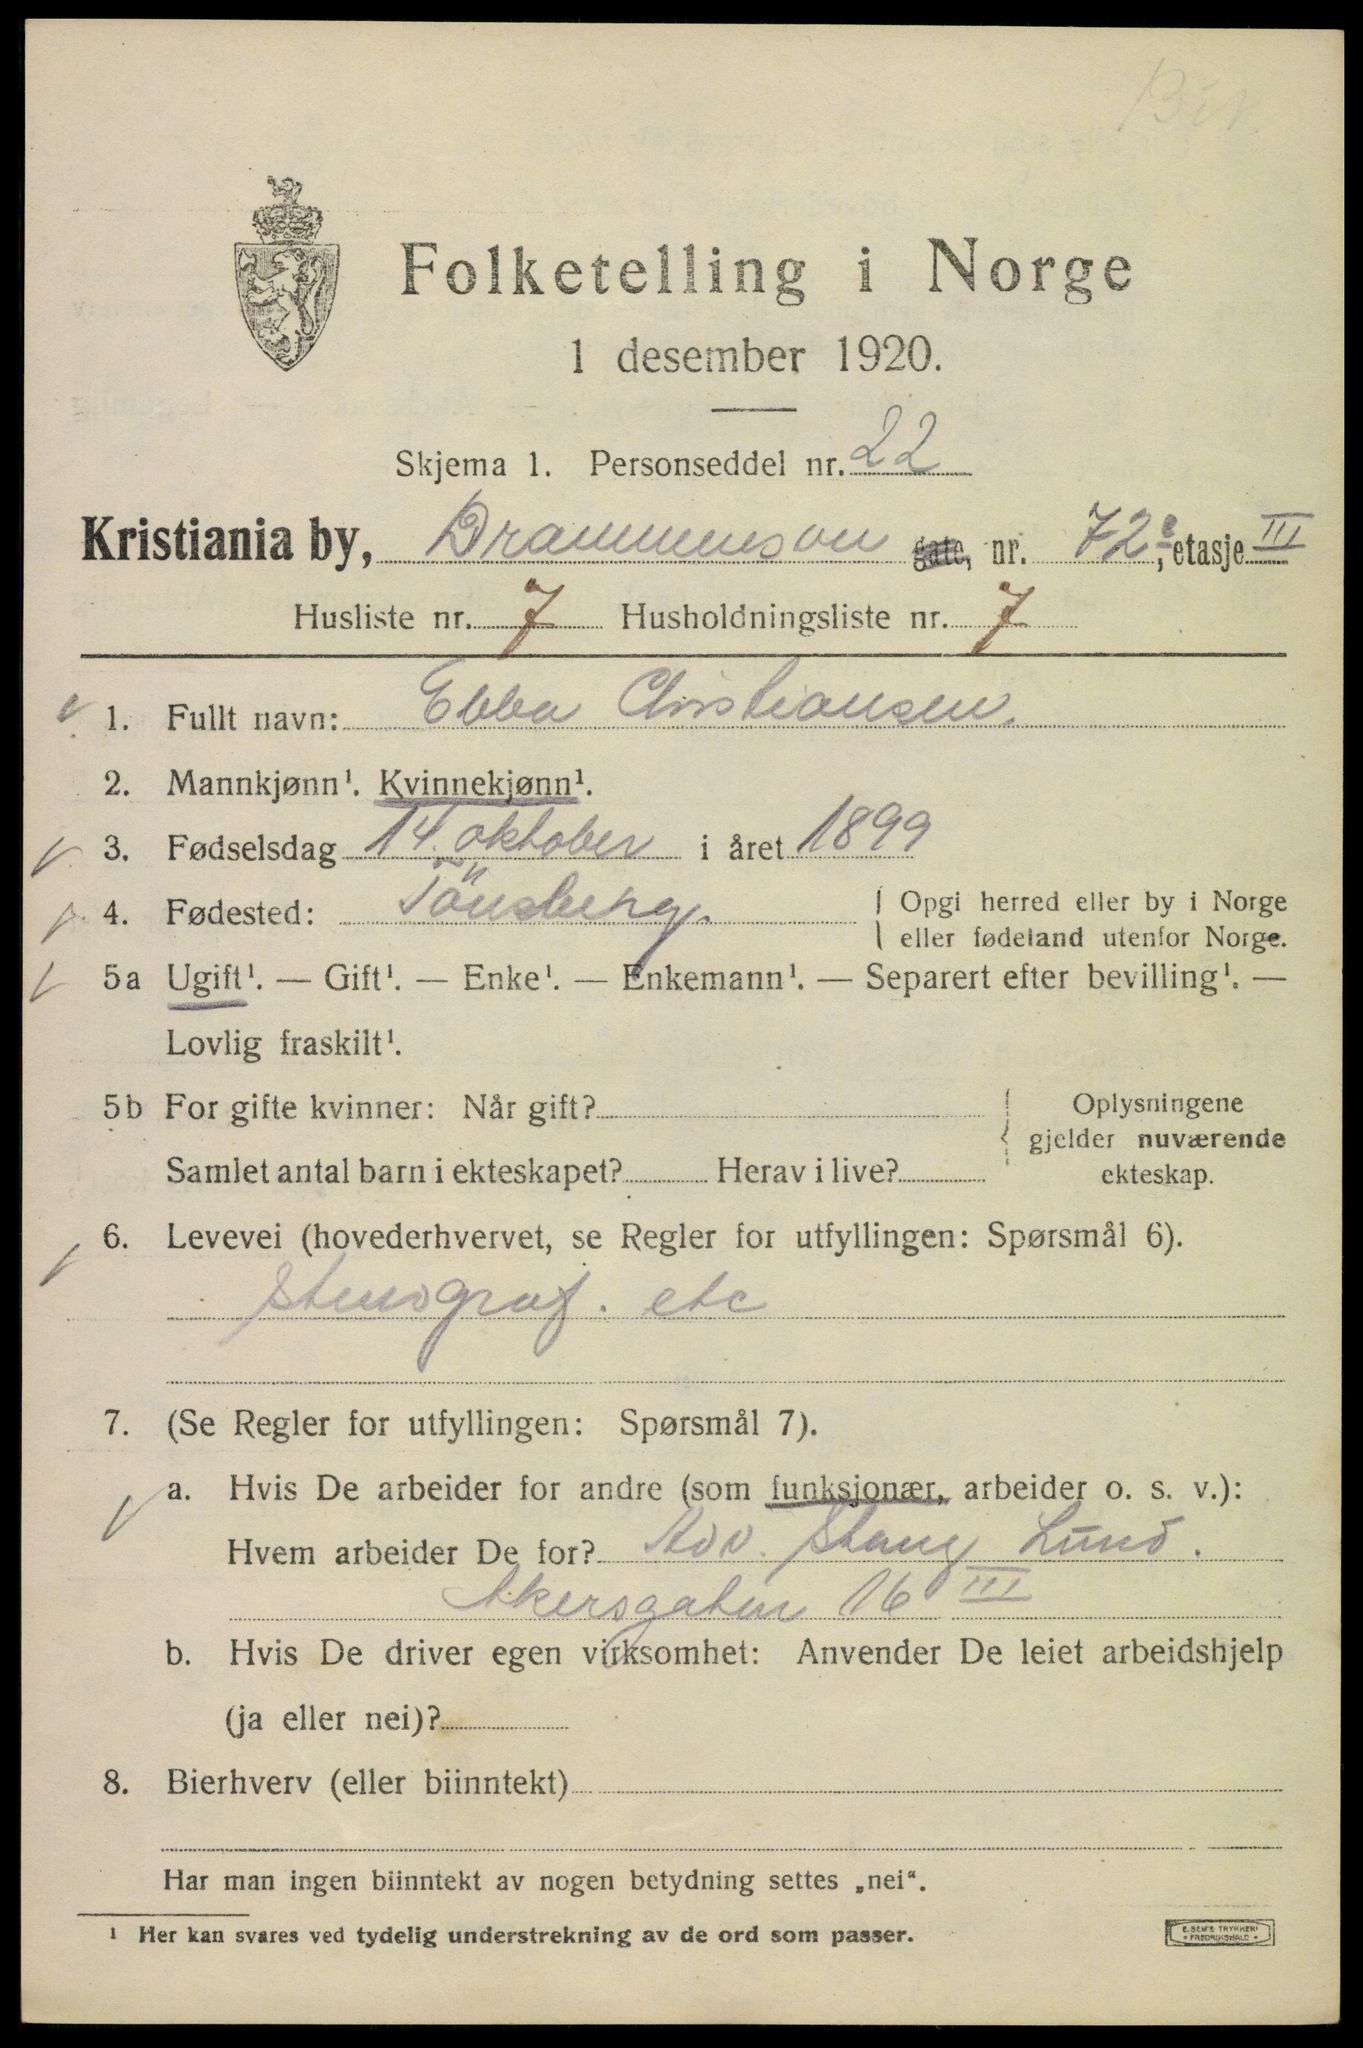 Folketelling i Norge
1 desember 1920.
Skjema 1. Personseddel nr. 22
Kristiania by, Drammensvn gate, nr. 72e, etasje III
Husliste nr. 7 Husholdningsliste nr. 7
1. Fullt navn: Ebba Christiansen.
2. Mannkjønn¹. Kvinnekjønn¹.
3. Fødselsdag 14. oktober i året 1899
4. Fødested: Tönsberg. Opgi herred eller by i Norge
eller fødeland utenfor Norge.
5a Ugift¹. — Gift¹. — Enke¹. — Enkemann¹. — Separert efter bevilling¹. —
Lovlig fraskilt¹.
5b For gifte kvinner: Når gift? Oplysningene
gjelder nuværende
Samlet antal barn i ekteskapet? Herav i live? ekteskap.
6. Levevei (hovederhvervet, se Regler for utfyllingen: Spørsmål 6).
Stenograf. etc
7. (Se Regler for utfyllingen: Spørsmål 7).
a. Hvis De arbeider for andre (som funksjonær, arbeider o. s. v.):
Hvem arbeider De for? Adv. Stang Lund.
Akersgaten 16 III
b. Hvis De driver egen virksomhet: Anvender De leiet arbeidshjelp
(ja eller nei)?
8. Bierhverv (eller biinntekt)
Har man ingen biinntekt av nogen betydning settes „nei“.
¹ Her kan svares ved tydelig understrekning av de ord som passer.
E. SEM'S TRYKKERI
FREDRIKSHALD